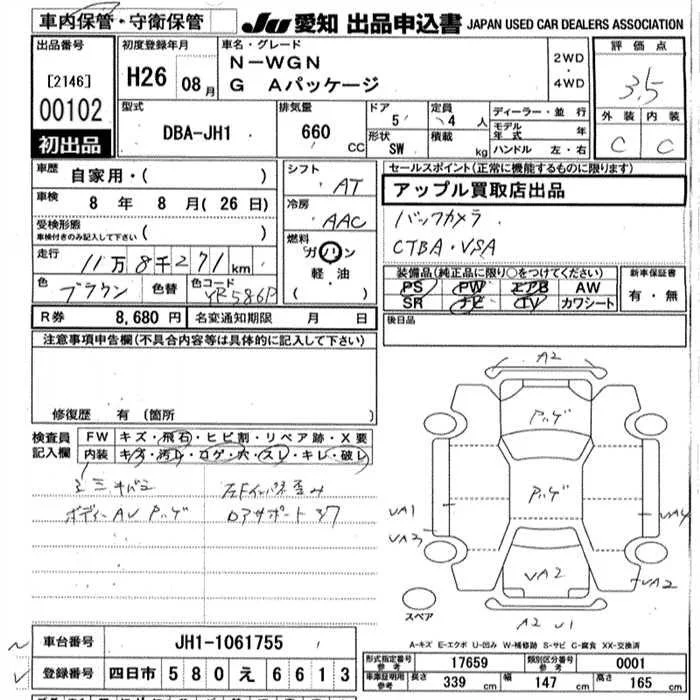 車内保管・守衛保管
JU 愛知 出品申込書 JAPAN USED CAR DEALERS ASSOCIATION
出品番号
[2146]
00102
初出品
初度登録年月
H26 08月
車名・グレード
N-WGN
G Aパッケージ
2WD
・
4WD
評価点
3.5
外装 内装
C C
型式
DBA-JH1
排気量
660 CC
ドア 5
形状 SW
定員 4 人
積載 kg
ディーラー・並行
モデル年式 年
ハンドル 左・右
車歴
自家用・( )
車検
8 年 8 月( 26 日)
受検形態
車検付きのみ記入して下さい ( )
走行
11万8千271km
色 ブラウン 色替 色コード YR586P
シフト AT
冷房 AAC
燃料
ガソリン
軽油
( )
セールスポイント(正常に機能するものに限ります)
アップル買取店出品
バックカメラ
CTBA・VSA
装備品(純正品に限り○をつけてください)
PS PW エアB AW
SR ナビ TV カワシート
新車保証書
有・無
R券 8,680 円 名変通知期限 月 日
後日品
注意事項申告欄(不具合内容等は具体的に記入して下さい)
修復歴 有 (箇所
検査員記入欄
FW キズ・飛石・ヒビ割・リペア跡・X要
内装 キズ・汚れ・コゲ・穴・スレ・キレ・破レ
ボディーAV
ロアサポート
A2
UA1
UA3
UA2
UA4
UA2
A2 U1
スペア
A-キズ E-エクボ U-凹み W-補修跡 S-サビ C-腐食 XX-交換済
車台番号 JH1-1061755
登録番号 四日市 580 え 6613
型式指定番号 参考 17659 類別区分番号 参考 0001
車庫証明用 参考 長さ 339 cm 幅 147 cm 高さ 165 cm